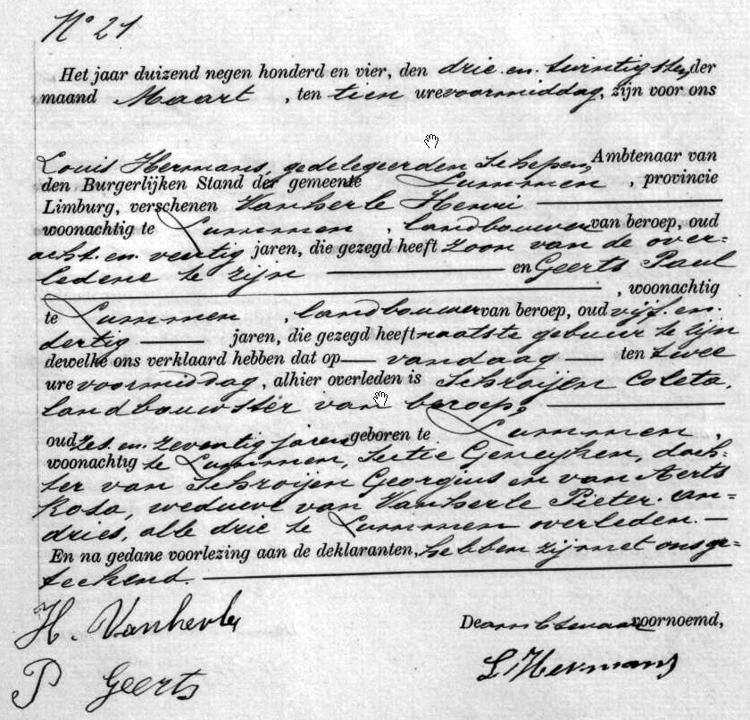 N° 21
Het jaar duizend negen honderd en vier, den drie en twintigsten der
maand Maart, ten tien ure voormiddag, zijn voor ons
Louis Hermans, gedelegeerden Schepen, Ambtenaar van
den Burgerlijken Stand der gemeente Lummen, provincie
Limburg, verschenen Vanherle Henri
woonachtig te Lummen, landbouwer van beroep, oud
acht en veertig jaren, die gezegd heeft zoon van de over-
ledene te zijn en Geerts Paul
, woonachtig
te Lummen, landbouwer van beroep, oud vijf en
dertig jaren, die gezegd heeft naaste gebuur te zijn
dewelke ons verklaard hebben dat op vandaag ten twee
ure voormiddag, alhier overleden is Schroijen Coleta,
landbouwster van beroep,
oud zes en zeventig jaren geboren te Lummen,
woonachtig te Lummen, Sectie Geneyken, doch-
ter van Schroijen Georgius en van Aerts
Rosa, weduwe van Vanherle Pieter An-
dries, alle drie te Lummen overleden. —
En na gedane voorlezing aan de deklaranten, hebben zij met ons ge-
teekend.
H. Vanherle
De ambtenaar voornoemd,
P Geerts
L Hermans